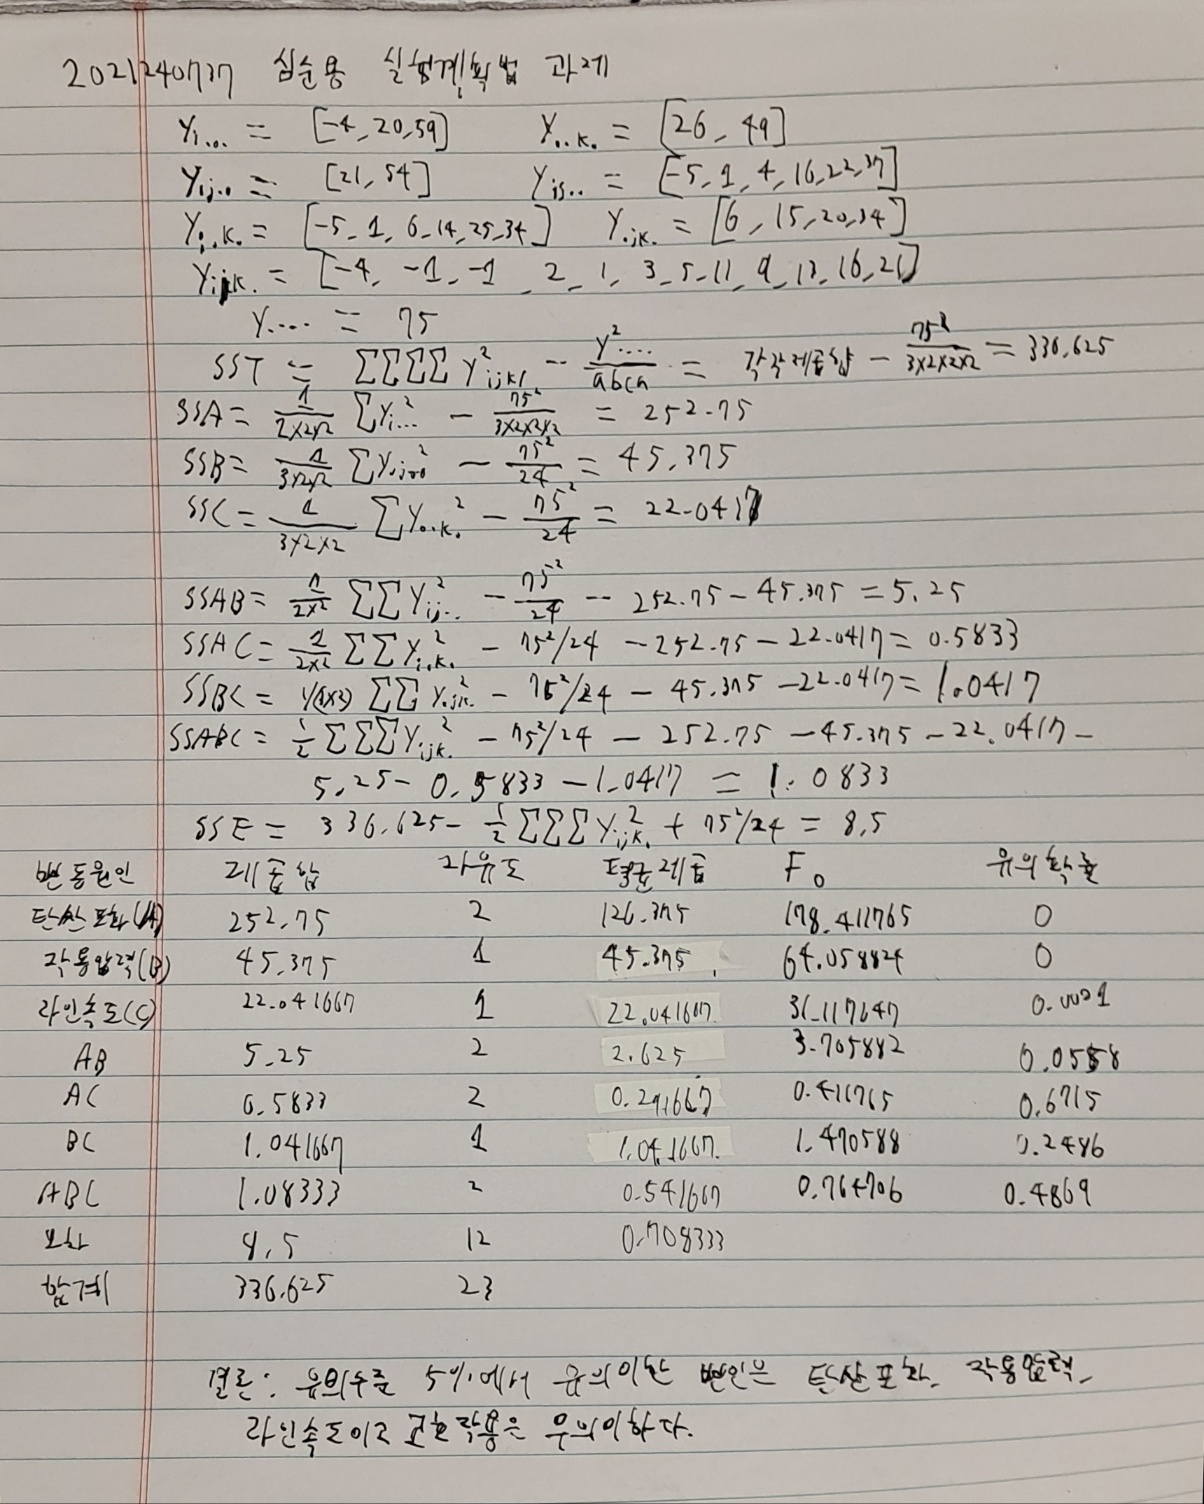 2021240737 심순용 실험계획법 과제
Yi... = [-4, 20, 59] Y..k. = [26, 49]
Yij.. = [21, 54] Yij.. = [-5, 1, 4, 16, 22, 37]
Yi.k. = [-5, 1, 6, 14, 25, 34] Y.jk. = [6, 15, 20, 34]
Yijk. = [-4, -1, -1, 2, 1, 3, 5, 11, 9, 13, 16, 21]
Y.... = 75
SST = ΣΣΣΣ Y²ijkl - Y²..../abcn = 각각제곱합 - 75²/3×2×2×2 = 336.625
SSA = 1/2×2×2 ΣYi...² - 75²/3×2×2×2 = 252.75
SSB = 1/3×2×2 ΣY.j..² - 75²/24 = 45.375
SSC = 1/3×2×2 ΣY..k.² - 75²/24 = 22.0417
SSAB = 1/2×2 ΣΣYij..² - 75²/24 - 252.75 - 45.375 = 5.25
SSAC = 1/2×2 ΣΣYi.k.² - 75²/24 - 252.75 - 22.0417 = 0.5833
SSBC = ΣΣ Y.jk.² - 75²/24 - 45.375 - 22.0417 = 1.0417
SSABC = 1/2 ΣΣΣYijk.² - 75²/24 - 252.75 - 45.375 - 22.0417 -
5.25 - 0.5833 - 1.0417 = 1.0833
SSE = 336.625 - 1/2 ΣΣΣYijk.² + 75²/24 = 8.5
변동원인 제곱합 자유도 평균제곱 F0 유의확률
탄산포화(A) 252.75 2 126.375 178.411765 0
작용압력(B) 45.375 1 45.375 64.058824 0
라인속도(C) 22.041667 1 22.041667 31.117647 0.0001
AB 5.25 2 2.625 3.705882 0.0558
AC 0.5833 2 0.291667 0.411765 0.6715
BC 1.041667 1 1.041667 1.470588 0.2486
ABC 1.08333 2 0.541667 0.764706 0.4869
오차 8.5 12 0.708333
합계 336.625 23
결론: 유의수준 5%에서 유의이한 변인은 탄산포화, 작용압력,
라인속도이고 교호작용은 무의이하다.